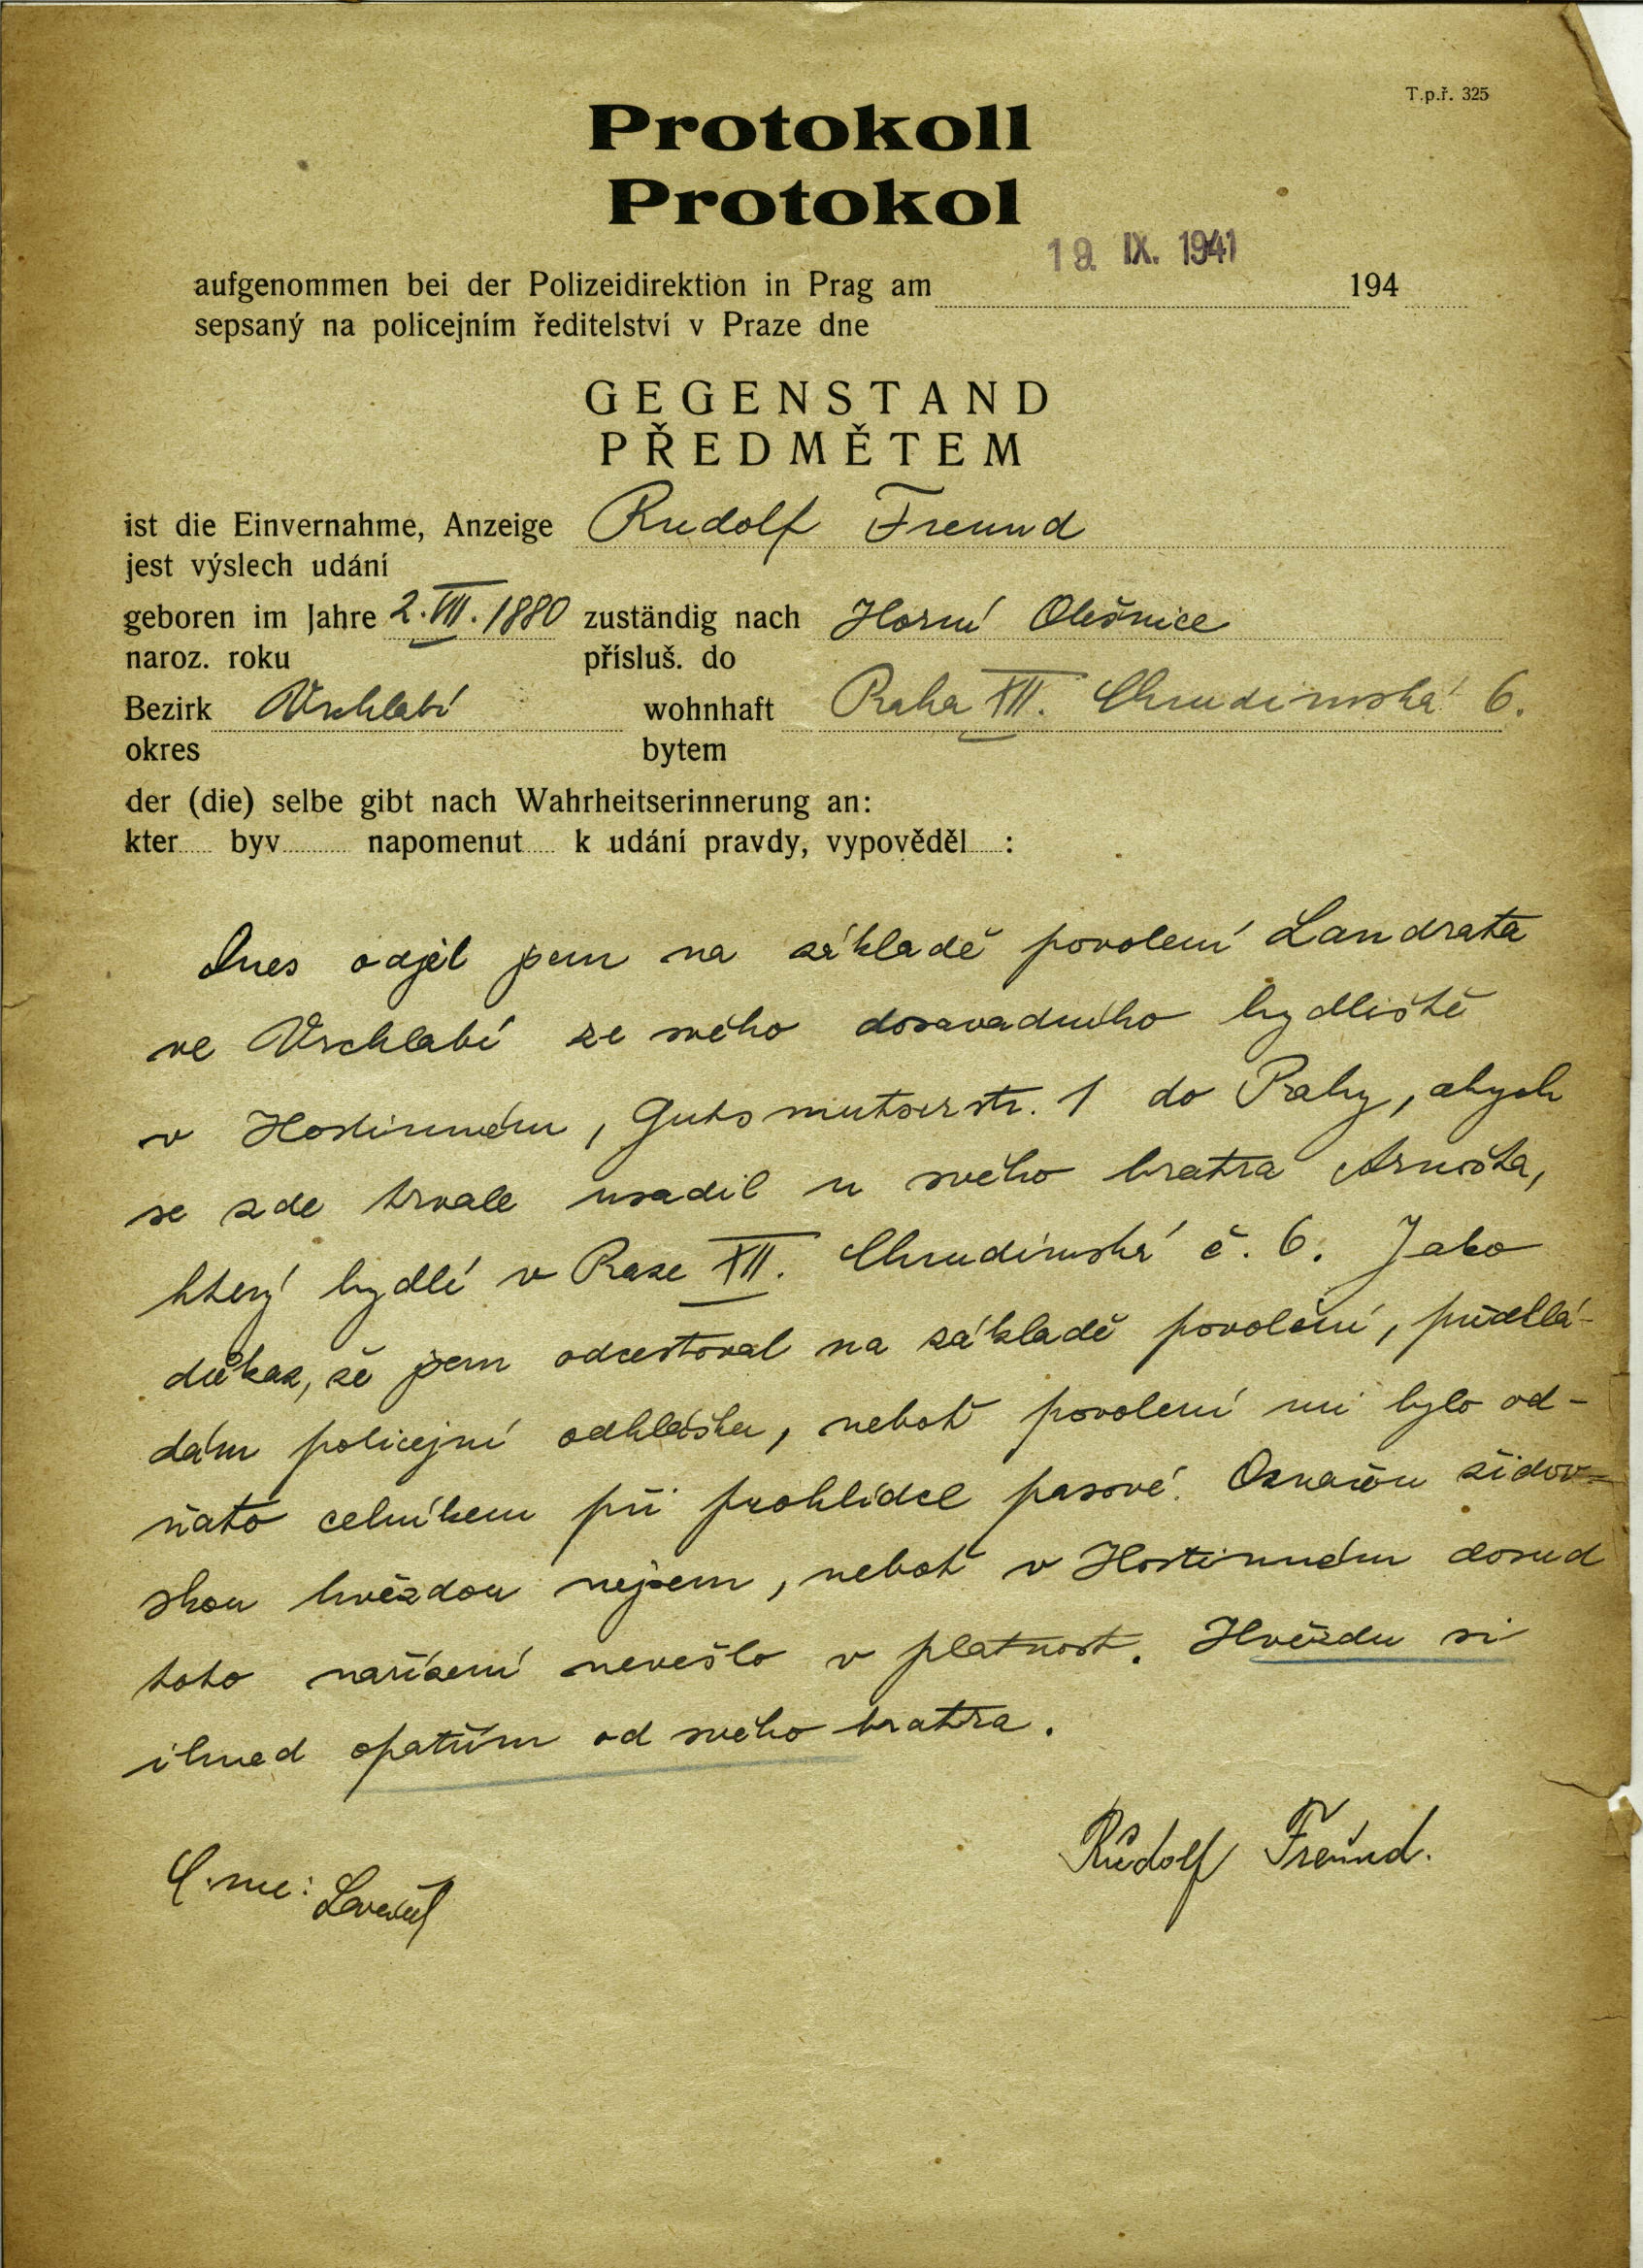 T.p.ř. 325
Protokoll
Protokol
19. IX. 1941
aufgenommen bei der Polizeidirektion in Prag am 194
sepsaný na policejním ředitelství v Praze dne
GEGENSTAND
PŘEDMĚTEM
ist die Einvernahme, Anzeige Rudolf Freund
jest výslech udání
geboren im Jahre 2.VII.1880 zuständig nach Horní Olešnice
naroz. roku přísluš. do
Bezirk Vrchlabí wohnhaft Praha XII. Chrudimská 6.
okres bytem
der (die) selbe gibt nach Wahrheitserinnerung an:
kter byv napomenut k udání pravdy, vypověděl :
Dnes odjel jsem na základě povolení Landrata
ve Vrchlabí ze svého dosavadního bydliště
v Hostinném, Gutsmutserstr. 1 do Prahy, abych
se zde trvale usadil u svého bratra Arnošta,
který bydlí v Praze XII. Chrudimská č. 6. Jako
důkaz, že jsem odcestoval na základě povolení, předklá-
dám policejní odhlášku, neboť povolení mi bylo od-
ňato celníkem při prohlídce pasové. Označen židov-
skou hvězdou nejsem, neboť v Hostinném dosud
toto nařízení nevešlo v platnost. Hvězdu si
ihned opatřím od svého bratra.
Rudolf Freund.